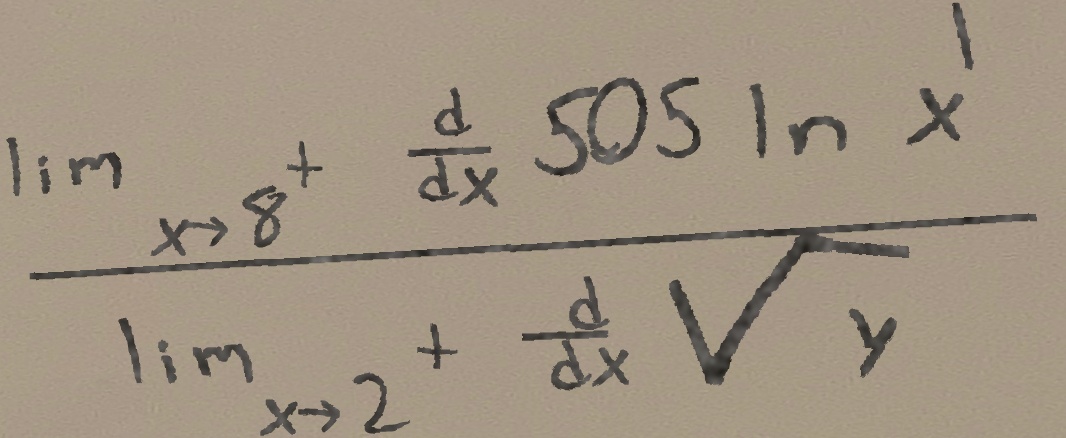 \frac{\lim_{x \to 8^+} \frac{d}{dx} 505 \ln x^1}{\lim_{x \to 2^+} \frac{d}{dx} \sqrt{y}}